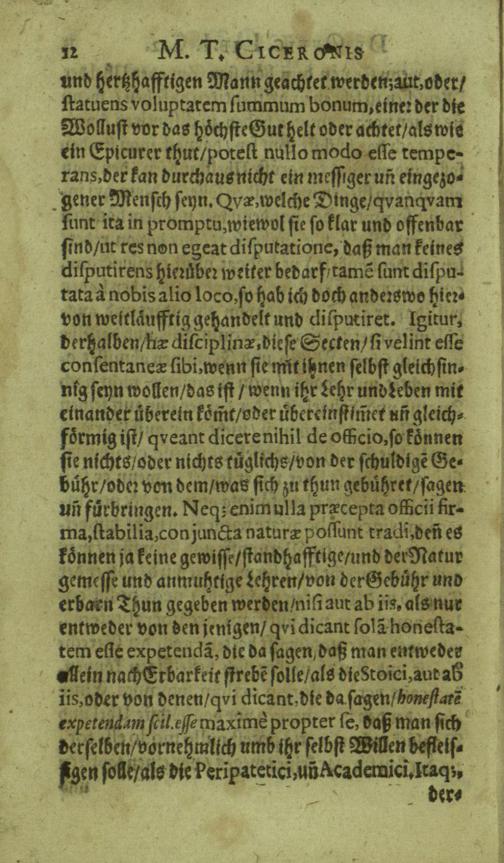 12 M. T. CICERONIS
und hertzhafftigen Mann geachtet werden; aut, oder/
statuens voluptatem summum bonum, einer der die
Wollust vor das höchste Gut helt oder achtet/als wie
ein Epicurer thut/potest nullo modo esse tempe-
rans, der kan durchaus nicht ein messiger uñ eingezo-
gener Mensch seyn. Qvæ, welche Dinge/qvanqvam
sunt ita in promptu, wiewol sie so klar und offenbar
sind/ut res non egeat disputatione, daß man keines
disputirens hierüber weiter bedarf/tamē sunt dispu-
tata à nobis alio loco, so hab ich doch anderswo hier-
von weitläufftig gehandelt und disputiret. Igitur,
derhalben/hæ disciplinæ, diese Secten/si velint esse
consentaneæ sibi, wenn sie mit ihnen selbst gleichsin-
nig seyn wollen/das ist/wenn ihr Lehr und Leben mit
einander überein kom̃t/oder übereinstim̃et uñ gleich-
förmig ist/ qveant dicere nihil de officio, so können
sie nichts/oder nichts tüglichs/von der schuldigē Ge-
bühr/oder von dem/was sich zu thun gebühret/sagen
uñ fürbringen. Neq; enim ulla præcepta officii fir-
ma, stabilia, conjuncta naturæ possunt tradi, deñ es
können ja keine gewisse/standhafftige/und der Natur
gemesse und anmuhtige Lehren/von der Gebühr und
erbarn Thun gegeben werden/nisi aut ab iis, als nur
entweder von den jenigen/ qvi dicant solā honesta-
tem esse expetendā, die da sagen, daß man entweder
allein nach Erbarkeit strebē solle/als die Stoici, aut ab
iis, oder von denen/qvi dicant, die da sagen/honestatē
expetendam scil. esse maximè propter se, daß man sich
derselben/vornehmlich umb ihr selbst Willen befleis-
sigen solle/als die Peripatetici, uñ Academici. Itaq;,
der-